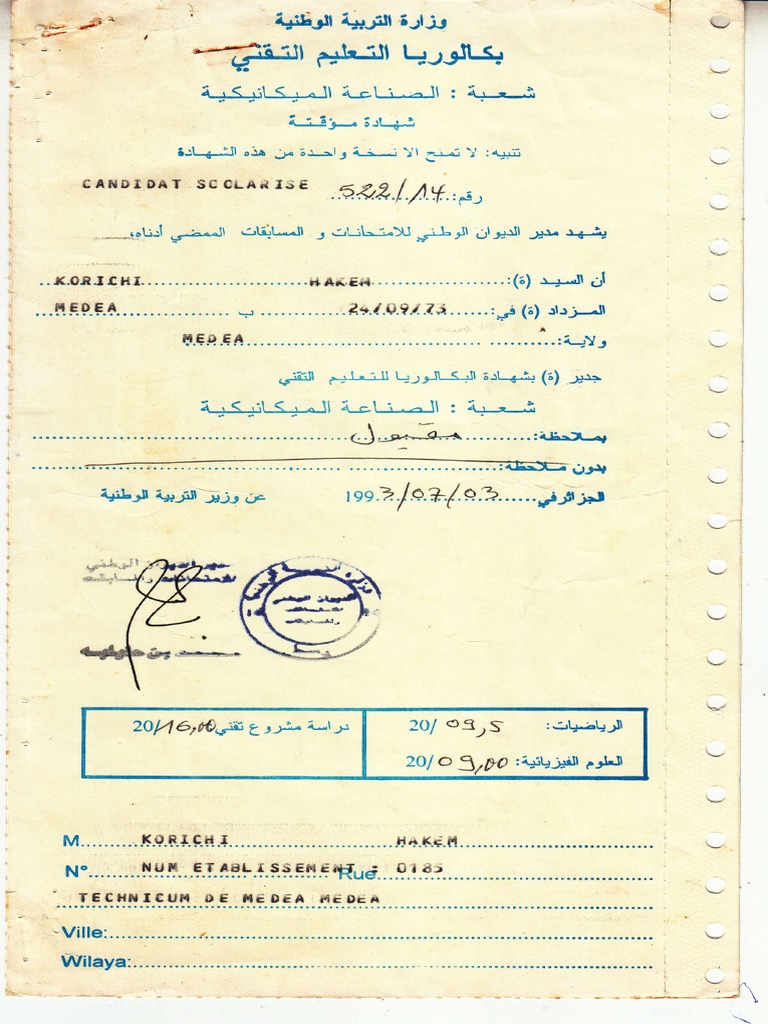 وزارة التربية الوطنية
بكالوريا التعليم التقني
شعبة : الصناعة الميكانيكية
شهادة مؤقتة
تنبيه: لا تمنح الا نسخة واحدة من هذه الشهادة
CANDIDAT SCOLARISE
رقم: 522/14
يشهد مدير الديوان الوطني للامتحانات و المسابقات الممضي أدناه،
أن السيد (ة): HAKEM KORICHI
المزداد (ة) في: 24/09/73 ب MEDEA
ولاية: MEDEA
جدير (ة) بشهادة البكالوريا للتعليم التقني
شعبة : الصناعة الميكانيكية
بملاحظة: مقبول
بدون ملاحظة:
الجزائر في 1993/07/03 عن وزير التربية الوطنية
الرياضيات: 09,5 /20
دراسة مشروع تقني 16,00 /20
العلوم الفيزيائية: 09,00 /20
M. KORICHI HAKEM
N° NUM ETABLISSEMENT : 0185 Rue
TECHNICUM DE MEDEA MEDEA
Ville:
Wilaya: